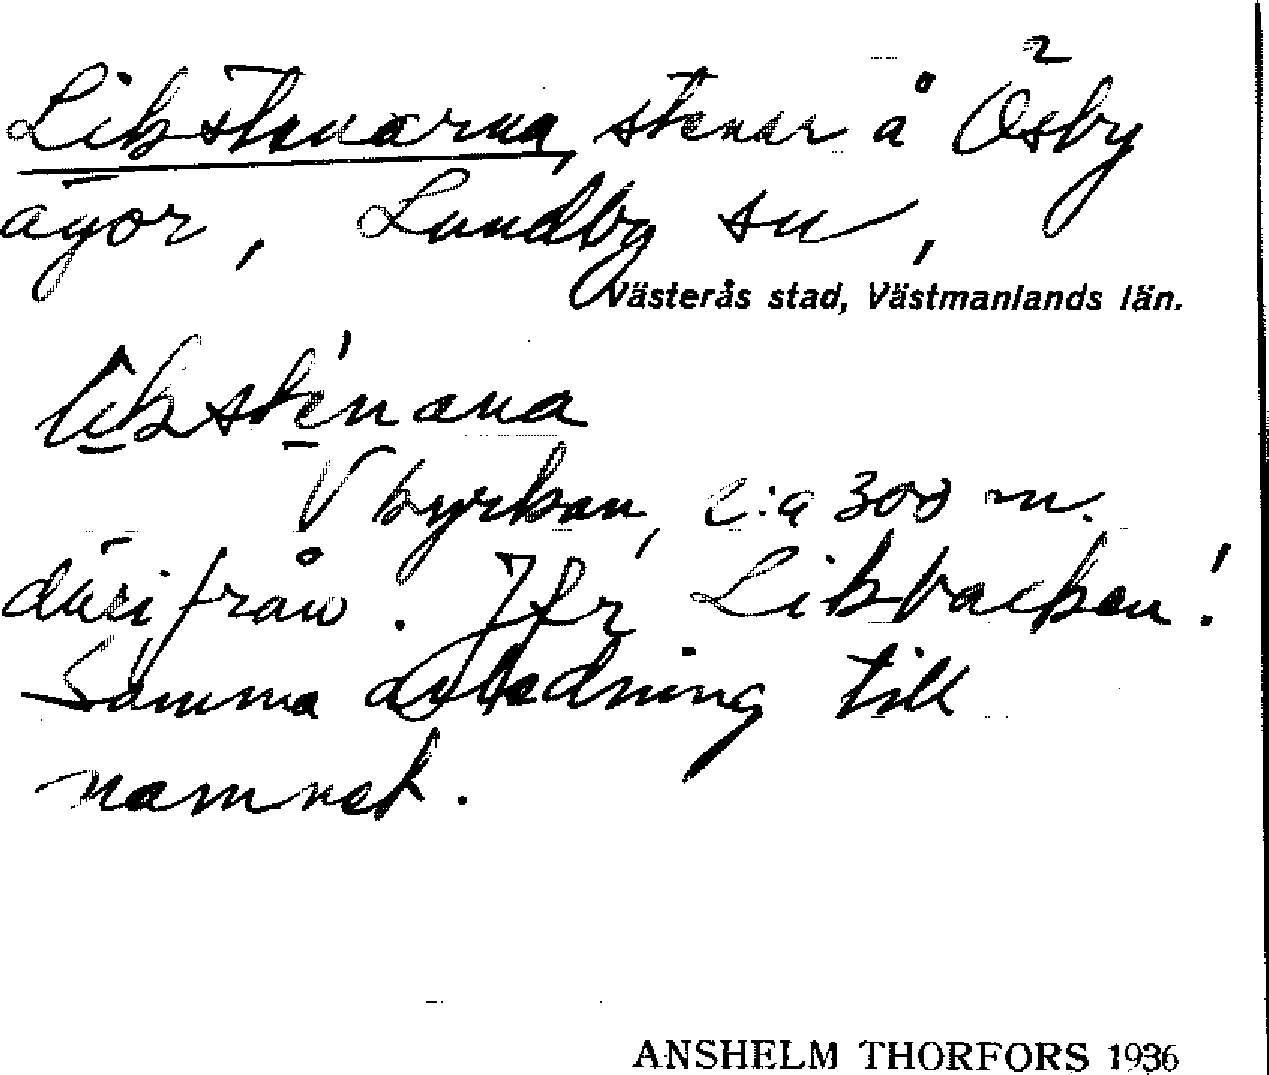 Likstenarna, stenar å Ösby
ägor, Lundby sn,
Västerås stad, Västmanlands län.
likste'nana
V kyrkan, c:a 300 m.
därifrån. Jfr Likbacken!
Samma avledning till
namnet.
ANSHELM THORFORS 1936